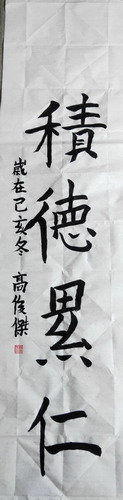 積德累仁
歲在己亥冬 高俊傑